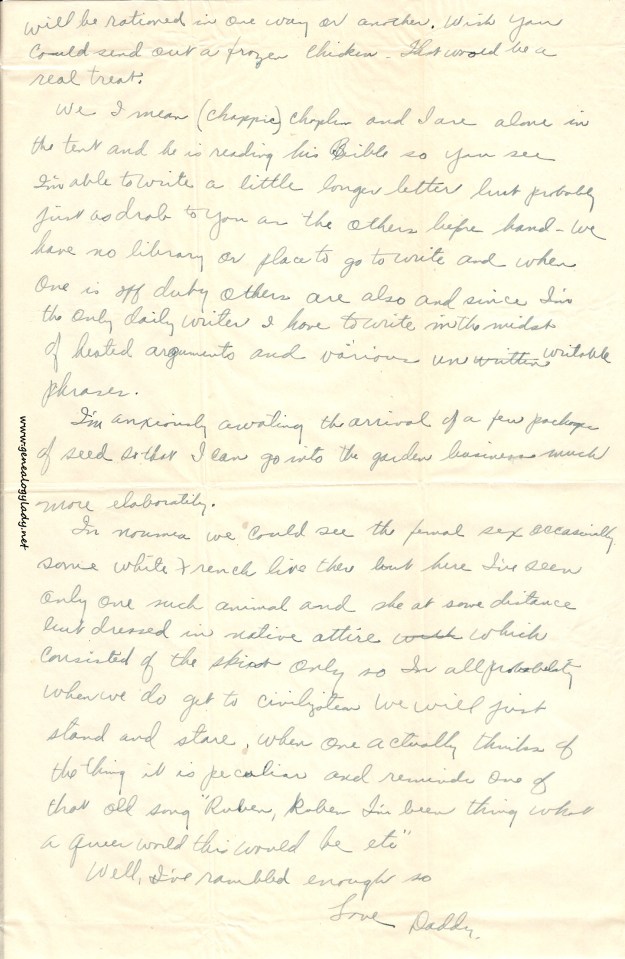 will be rationed in one way or another. Wish you
could send out a frozen chicken - that would be a
real treat.
We I mean (chappie) Choplin and I are alone in
the tent and he is reading his Bible so you see
I'm able to write a little longer letter but probably
just as drab to you as the others before hand - We
have no library or place to go to write and when
one is off duty others are also and since I'm
the only daily writer I have to write in the midst
of heated arguments and various un written writable
phrases.
I'm anxiously awating the arrival of a few packages
of seed so that I can go into the garden business much
more elaborately.
In noumea we could see the femal sex occasionally
some white French live there but here I've seen
only one such animal and she at some distance
but dressed in native attire which
consisted of the skirt only so In all probability
when we do get to civilization we will just
stand and stare, when one actually thinks of
the thing it is peculiar and reminds one of
that old song "Ruben, Ruben I'm been thing what
a queer world this would be etc"
Well, I've rambled enough so
Love Daddy.
www.genealogylady.net